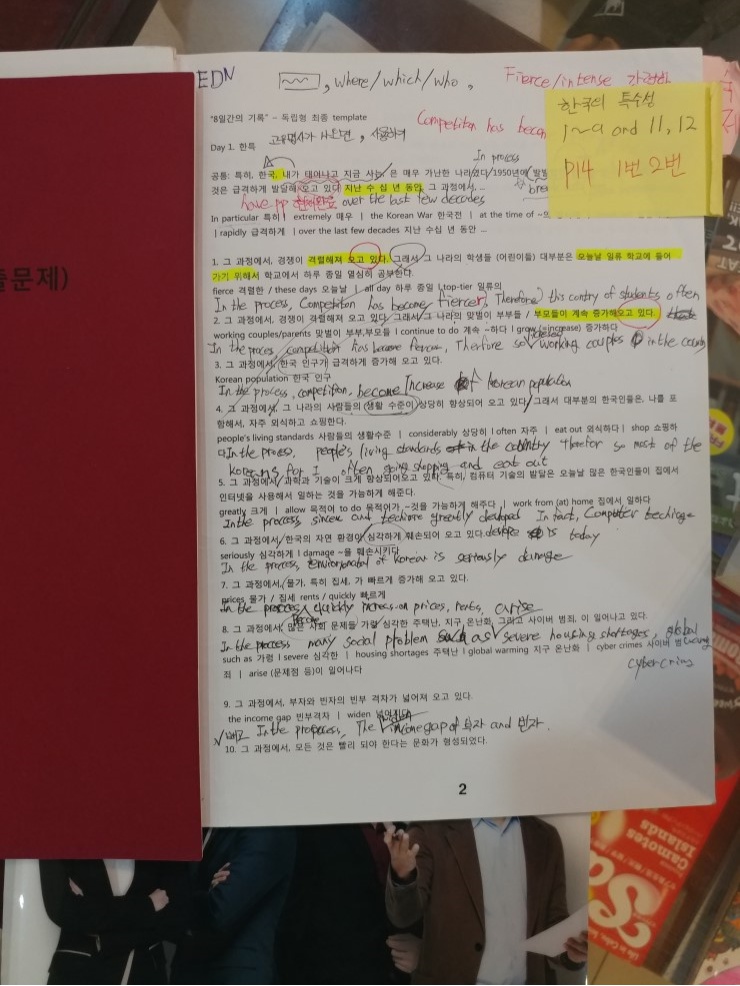 EDN
, where/which/who,
Fierce/intense
한국의 특수성
1~9 and 11, 12
P14 1번 2번
"8일간의 기록" - 독립형 최종 template
Competition has becom
Day 1. 한특
고유명사가 나오면, 사용하여
In process
공통: 특히, 한국, 내가 태어나고 지금 사는, 은 매우 가난한 나라였다/1950년에
것은 급격하게 발달해 오고 있다 지난 수 십 년 동안, 그 과정에서, ...
have pp 현재완료 over the last few decades
In particular 특히 | extremely 매우 | the Korean War 한국전 | at the time of
| rapidly 급격하게 | over the last few decades 지난 수 십 년 동안 ...
1. 그 과정에서, 경쟁이 격렬해져 오고 있다. 그래서 그 나라의 학생들 (어린이들) 대부분은 오늘날 일류 학교에 들어
가기 위해서 학교에서 하루 종일 열심히 공부한다.
fierce 격렬한 / these days 오늘날 | all day 하루 종일 | top-tier 일류의
In the process, Competition has become fiercer, Therefore, this contry of students often
2. 그 과정에서, 경쟁이 격렬해져 오고 있다/ 그래서/ 그 나라의 맞벌이 부부들 / 부모들이 계속 증가해오고 있다.
working couples/parents 맞벌이 부부,부모들 | continue to do 계속 ~하다 | grow (=increase) 증가하다
In the proces, competition has became fiercer, Therfore so working couples in the
3. 그 과정에서, 한국 인구가 급격하게 증가해 오고 있다.
Korean population 한국 인구
In the process, competition, become Increase of korean population
4. 그 과정에서, 그 나라의 사람들의 생활 수준이 상당히 향상되어 오고 있다/ 그래서 대부분의 한국인들은, 나를 포
함해서, 자주 외식하고 쇼핑한다.
people's living standards 사람들의 생활수준 | considerably 상당히 | often 자주 | eat out 외식하다 | shop 쇼핑하
다 In the proces, people's living standards in the Therefor so most of the
koreans for I often going shopping and eat out
5. 그 과정에서/ 과학과 기술이 크게 향상되어오고 있다. 특히, 컴퓨터 기술의 발달은 오늘날 많은 한국인들이 집에서
인터넷을 사용해서 일하는 것을 가능하게 해준다.
greatly 크게 | allow 목적어 to do 목적어가 ~것을 가능하게 해주다 | work from (at) home 집에서 일하다
In the process, and greatly In fact, Computer
6. 그 과정에서/ 한국의 자연 환경이 심각하게 훼손되어 오고 있다. is today
seriously 심각하게 | damage ~을 훼손시키다
In the process, of Korean is seriously damage
7. 그 과정에서, 물가, 특히 집세, 가 빠르게 증가해 오고 있다.
prices 물가 / 집세 rents / quickly 빠르게
In the process quickly on prices, rents, arise
8. 그 과정에서, 많은 사회 문제들/ 가령/ 심각한 주택난, 지구 온난화, 그리고 사이버 범죄, 이 일어나고 있다.
In the process many social problem as severe housing shortages, global
such as 가령 | severe 심각한 | housing shortages 주택난 | global warming 지구 온난화 | cyber crimes 사이버 범
죄 | arise (문제점 등)이 일어나다
cyber crime
9. 그 과정에서, 부자와 빈자의 빈부 격자가 넓어져 오고 있다.
the income gap 빈부격차 | widen 넓어지다
In the process, The income gap of 부자 and 빈자.
10. 그 과정에서, 모든 것은 빨리 되야 한다는 문화가 형성되었다.
2
출문제)
Camotes
Islands